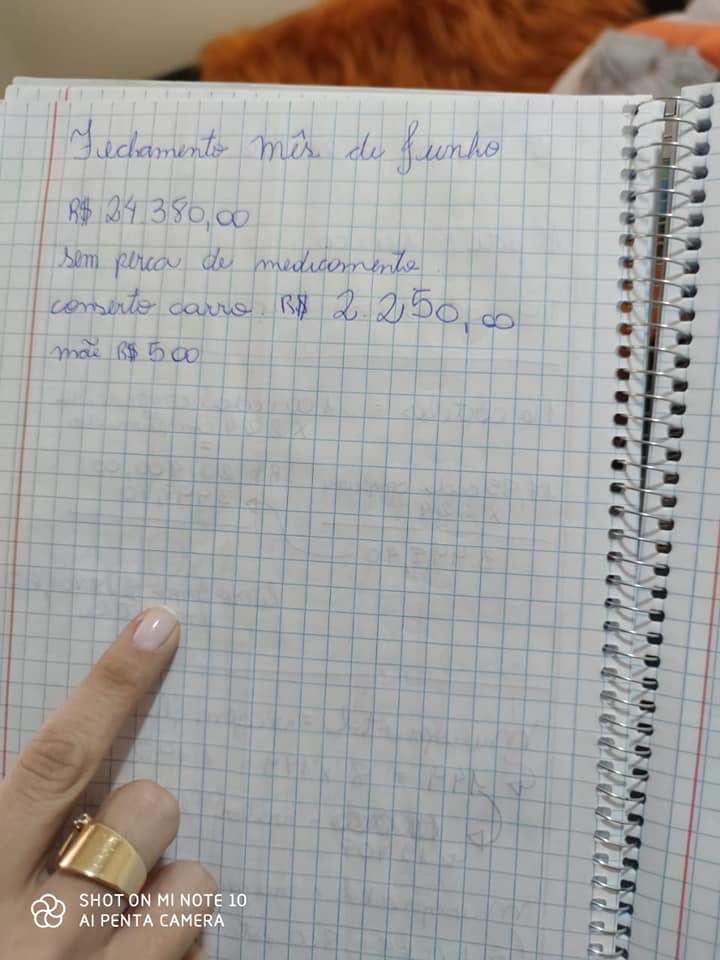 Fechamento mês de Junho
R$ 24.380,00
sem perca de medicamento.
conserto carro. R$ 2.250,00
mãe R$ 500
SHOT ON MI NOTE 10
AI PENTA CAMERA